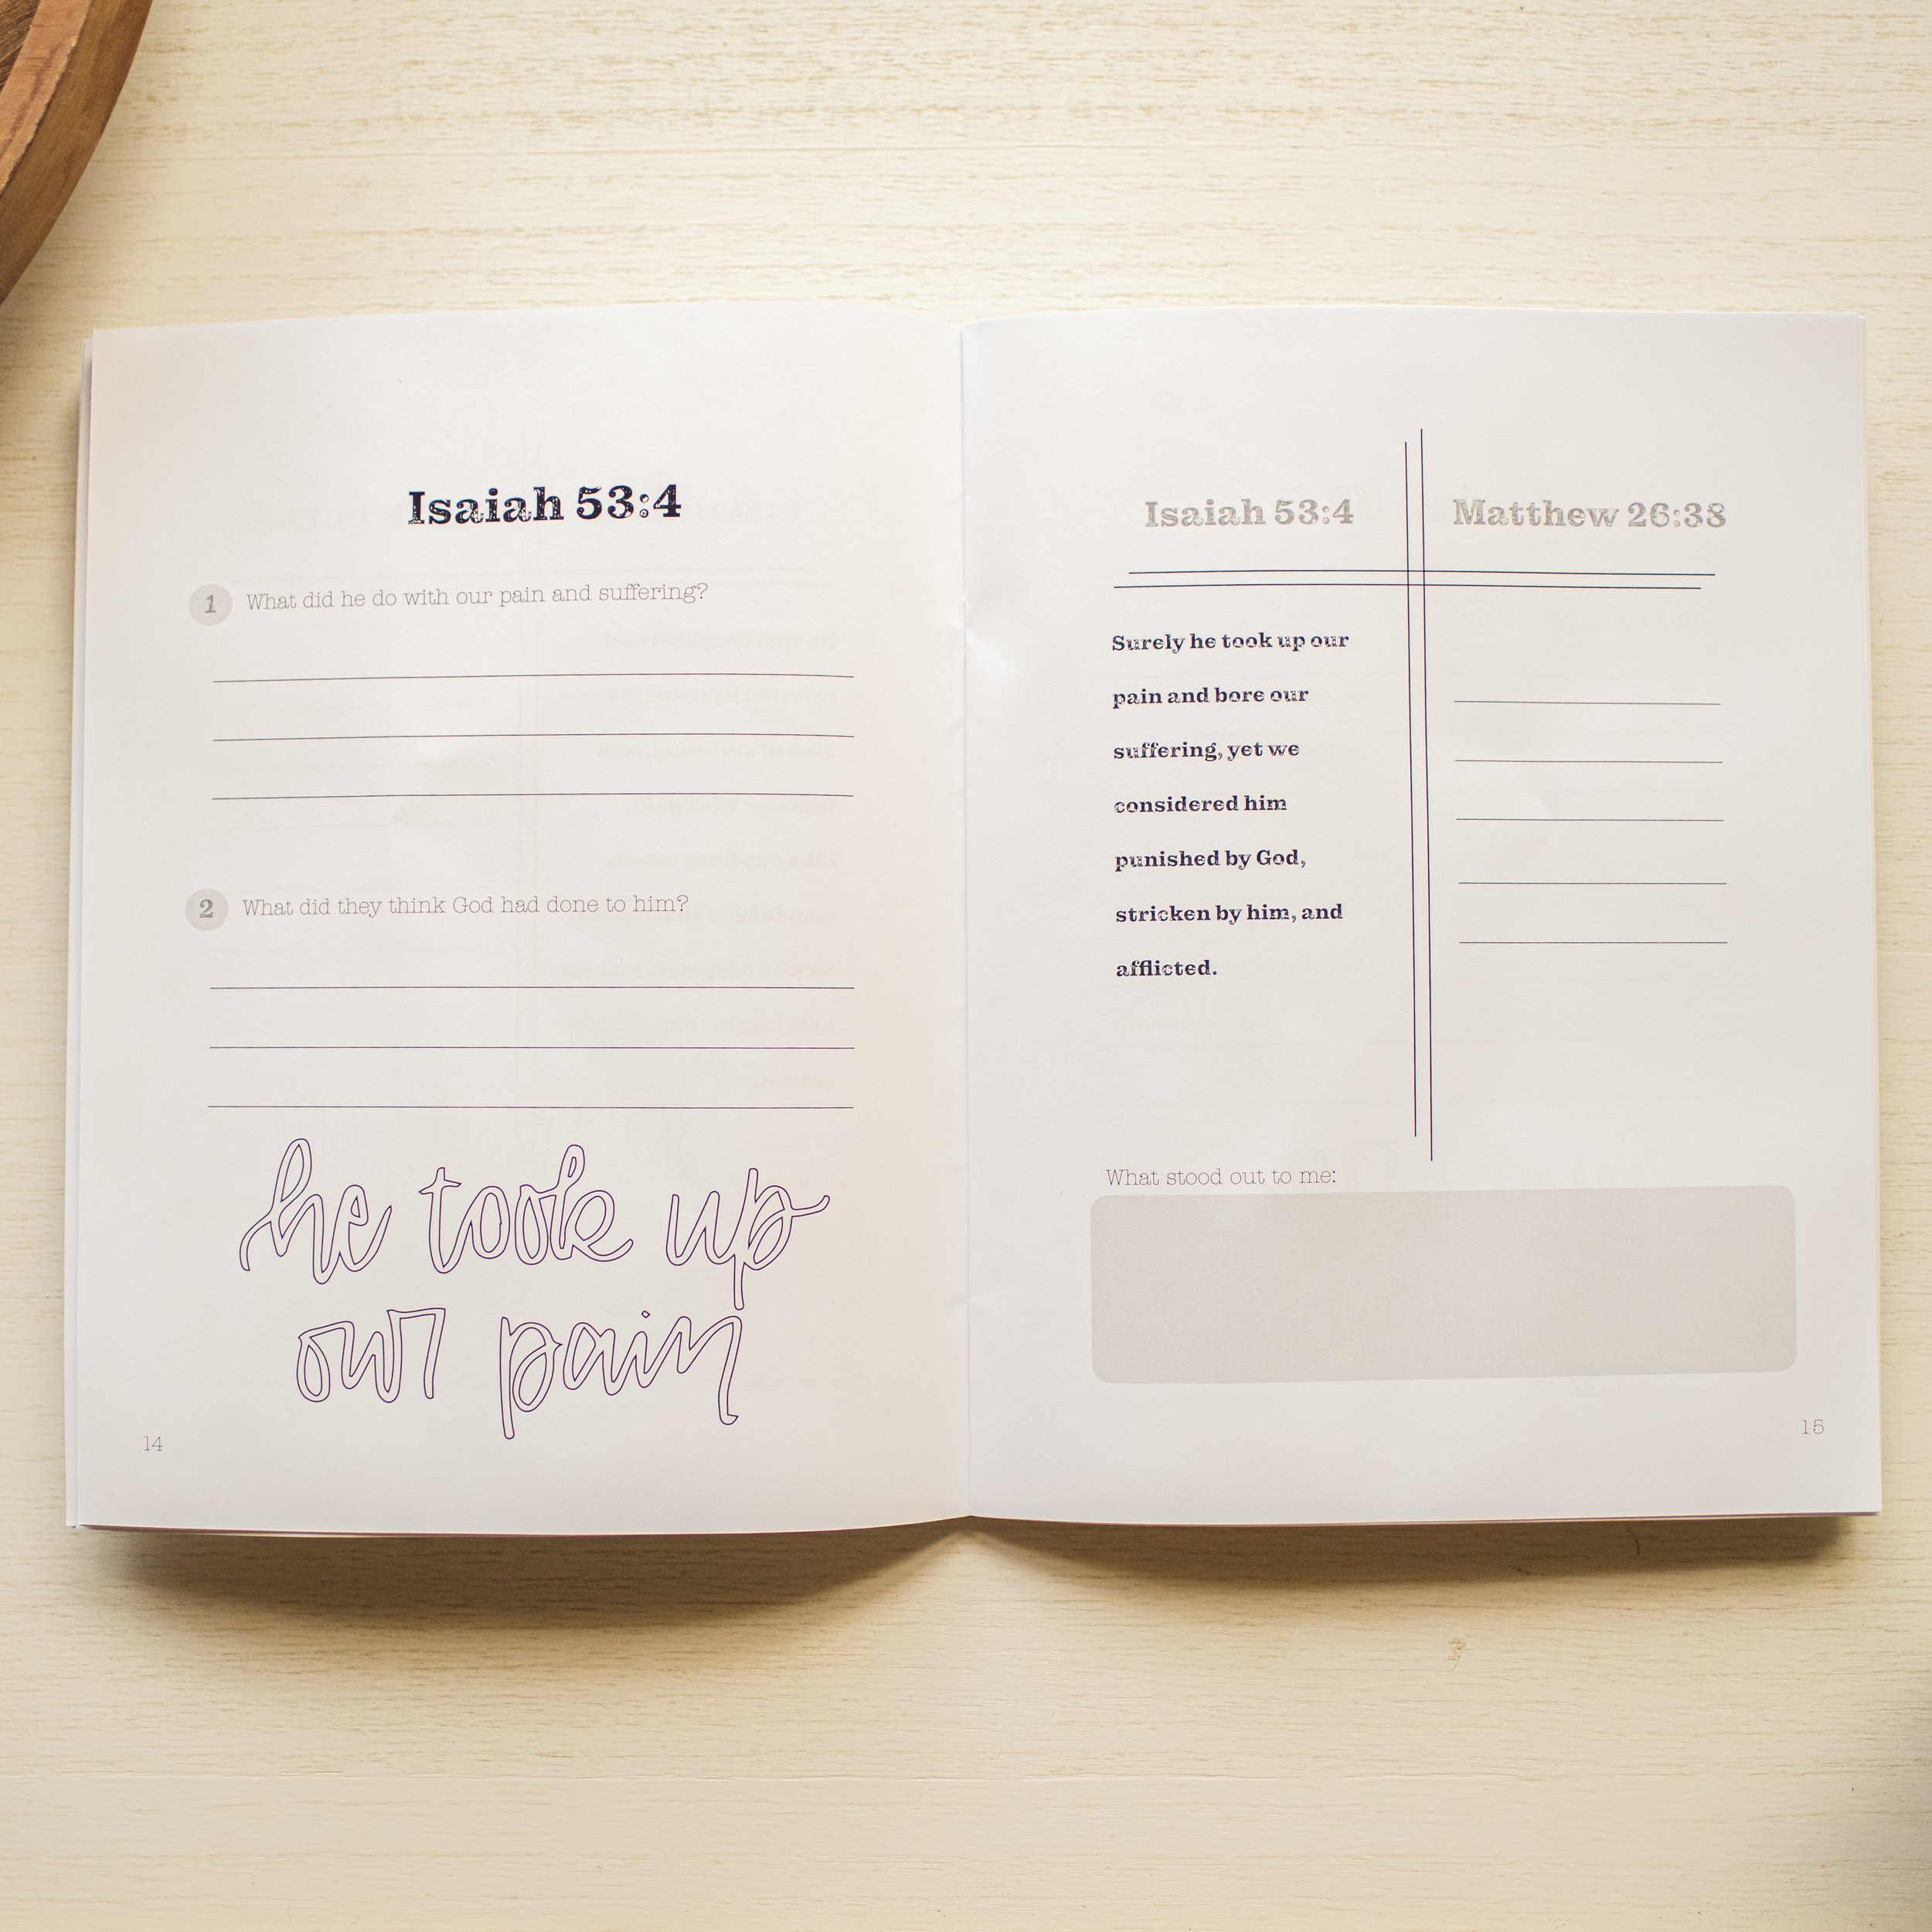 Isaiah 53:4
1 What did he do with our pain and suffering?
2 What did they think God had done to him?
he took up
our pain
14
Isaiah 53:4
Matthew 26:38
Surely he took up our
pain and bore our
suffering, yet we
considered him
punished by God,
stricken by him, and
afflicted.
What stood out to me:
15